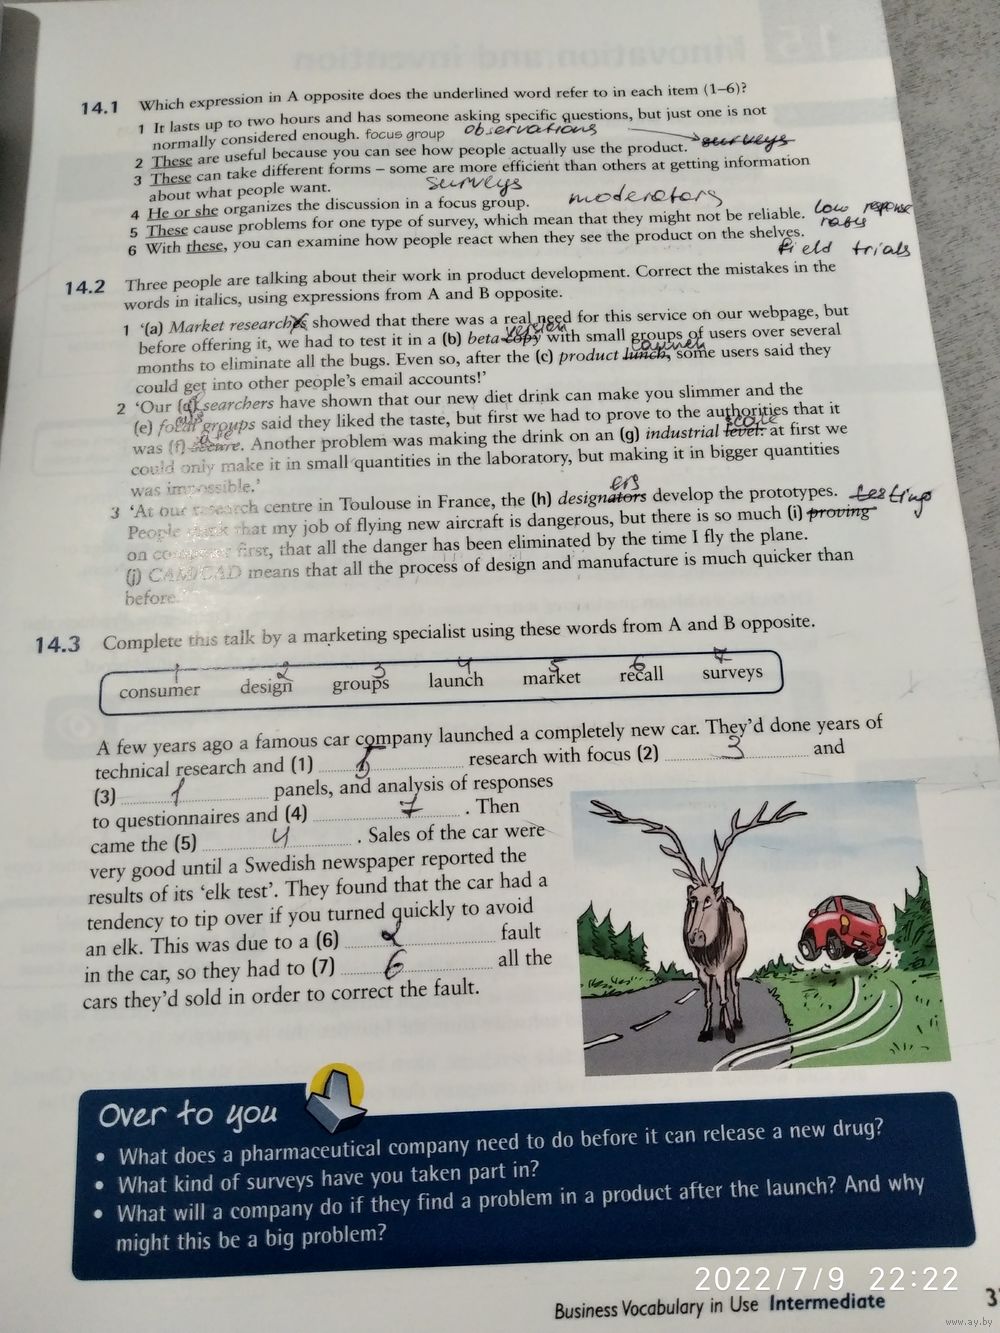 14.1 Which expression in A opposite does the underlined word refer to in each item (1–6)?
1 It lasts up to two hours and has someone asking specific questions, but just one is not
normally considered enough. focus group observations
2 These are useful because you can see how people actually use the product. surveys
3 These can take different forms – some are more efficient than others at getting information
about what people want. surveys
4 He or she organizes the discussion in a focus group. moderators
5 These cause problems for one type of survey, which mean that they might not be reliable. low response rates
6 With these, you can examine how people react when they see the product on the shelves.
field trials
14.2 Three people are talking about their work in product development. Correct the mistakes in the
words in italics, using expressions from A and B opposite.
1 ‘(a) Market researches showed that there was a real need for this service on our webpage, but
version
before offering it, we had to test it in a (b) beta copy with small groups of users over several
launch
months to eliminate all the bugs. Even so, after the (c) product lunch, some users said they
could get into other people’s email accounts!’
2 ‘Our (d) searchers have shown that our new diet drink can make you slimmer and the
(e) focal groups said they liked the taste, but first we had to prove to the authorities that it
scale
was (f) secure. Another problem was making the drink on an (g) industrial level: at first we
could only make it in small quantities in the laboratory, but making it in bigger quantities
was impossible.’
ers
3 ‘At our research centre in Toulouse in France, the (h) designators develop the prototypes. testing
People think that my job of flying new aircraft is dangerous, but there is so much (i) proving
on computer first, that all the danger has been eliminated by the time I fly the plane.
(j) CAM/CAD means that all the process of design and manufacture is much quicker than
before.
14.3 Complete this talk by a marketing specialist using these words from A and B opposite.
1 2 3 4 5 6 7
consumer design groups launch market recall surveys
A few years ago a famous car company launched a completely new car. They’d done years of
technical research and (1) 5 research with focus (2) 3 and
(3) 1 panels, and analysis of responses
to questionnaires and (4) 7 . Then
came the (5) 4 . Sales of the car were
very good until a Swedish newspaper reported the
results of its ‘elk test’. They found that the car had a
tendency to tip over if you turned quickly to avoid
an elk. This was due to a (6) 2 fault
in the car, so they had to (7) 6 all the
cars they’d sold in order to correct the fault.
Over to you
• What does a pharmaceutical company need to do before it can release a new drug?
• What kind of surveys have you taken part in?
• What will a company do if they find a problem in a product after the launch? And why
might this be a big problem?
2022/7/9 22:22
Business Vocabulary in Use Intermediate
www.ay.by